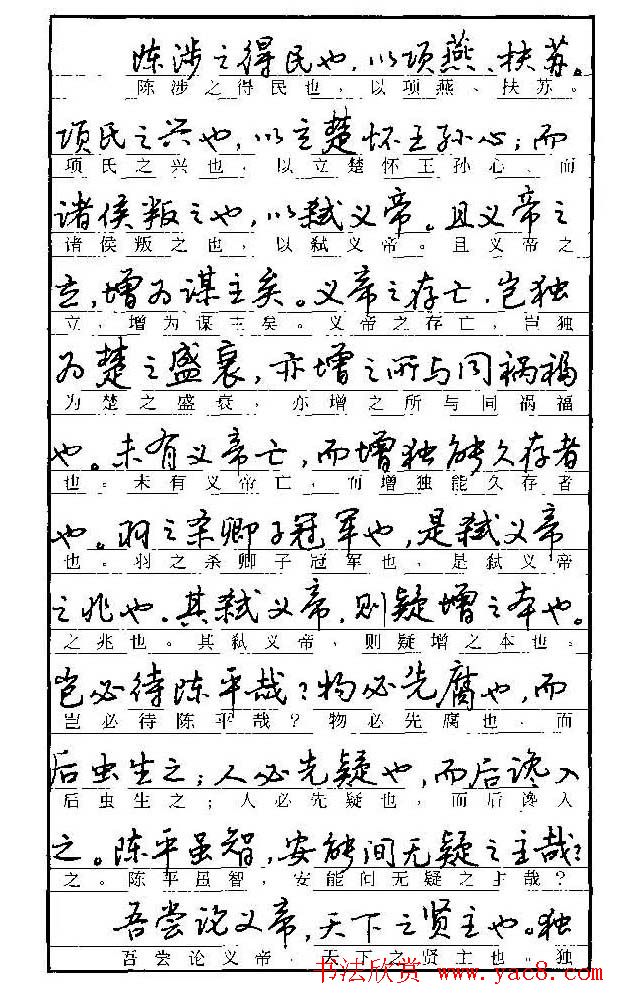 陈涉之得民也，以项燕、扶苏。
陈涉之得民也，以项燕、扶苏。
项氏之兴也，以立楚怀王孙心；而
项氏之兴也，以立楚怀王孙心、而
诸侯叛之也，以弑义帝。且义帝之
诸侯叛之也，以弑义帝。且义帝之
立，增为谋主矣。义帝之存亡，岂独
立，增为谋主矣。义帝之存亡，岂独
为楚之盛衰，亦增之所与同祸福
为楚之盛衰，亦增之所与同祸福
也。未有义帝亡，而增独能久存者
也。未有义帝亡，而增独能久存者
也。羽之杀卿子冠军也，是弑义帝
也。羽之杀卿子冠军也，是弑义帝
之兆也。其弑义帝，则疑增之本也。
之兆也。其弑义帝，则疑增之本也。
岂必待陈平哉？物必先腐也，而
岂必待陈平哉？物必先腐也，而
后虫生之；人必先疑也，而后谗入
后虫生之；人必先疑也，而后谗入
之。陈平虽智，安能间无疑之主哉？
之。陈平虽智，安能间无疑之主哉？
吾尝论义帝，天下之贤主也。独
吾尝论义帝，天下之贤主也。独
书法欣赏 www.yac8.com